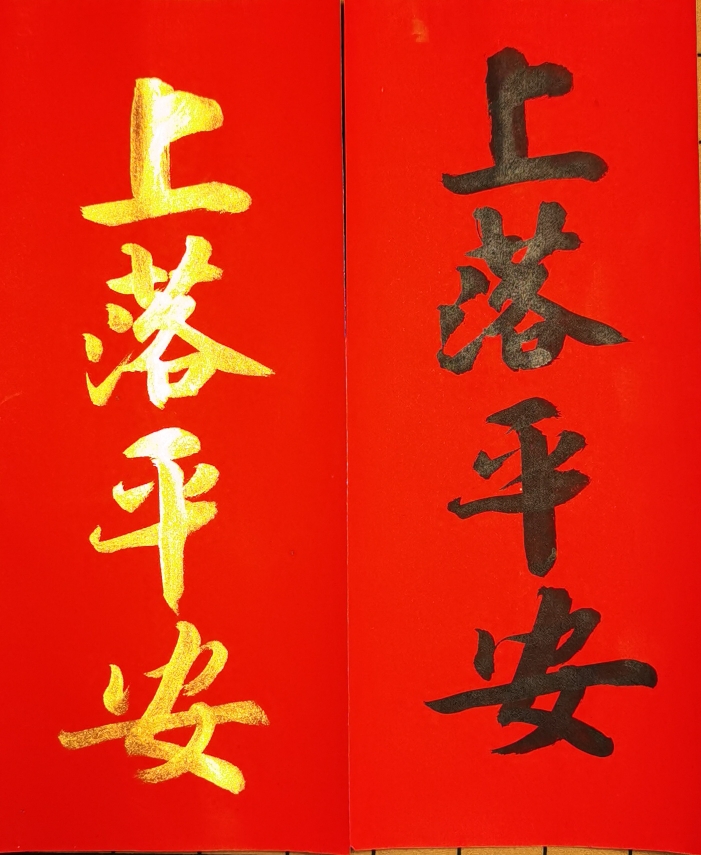 上落平安
上落平安